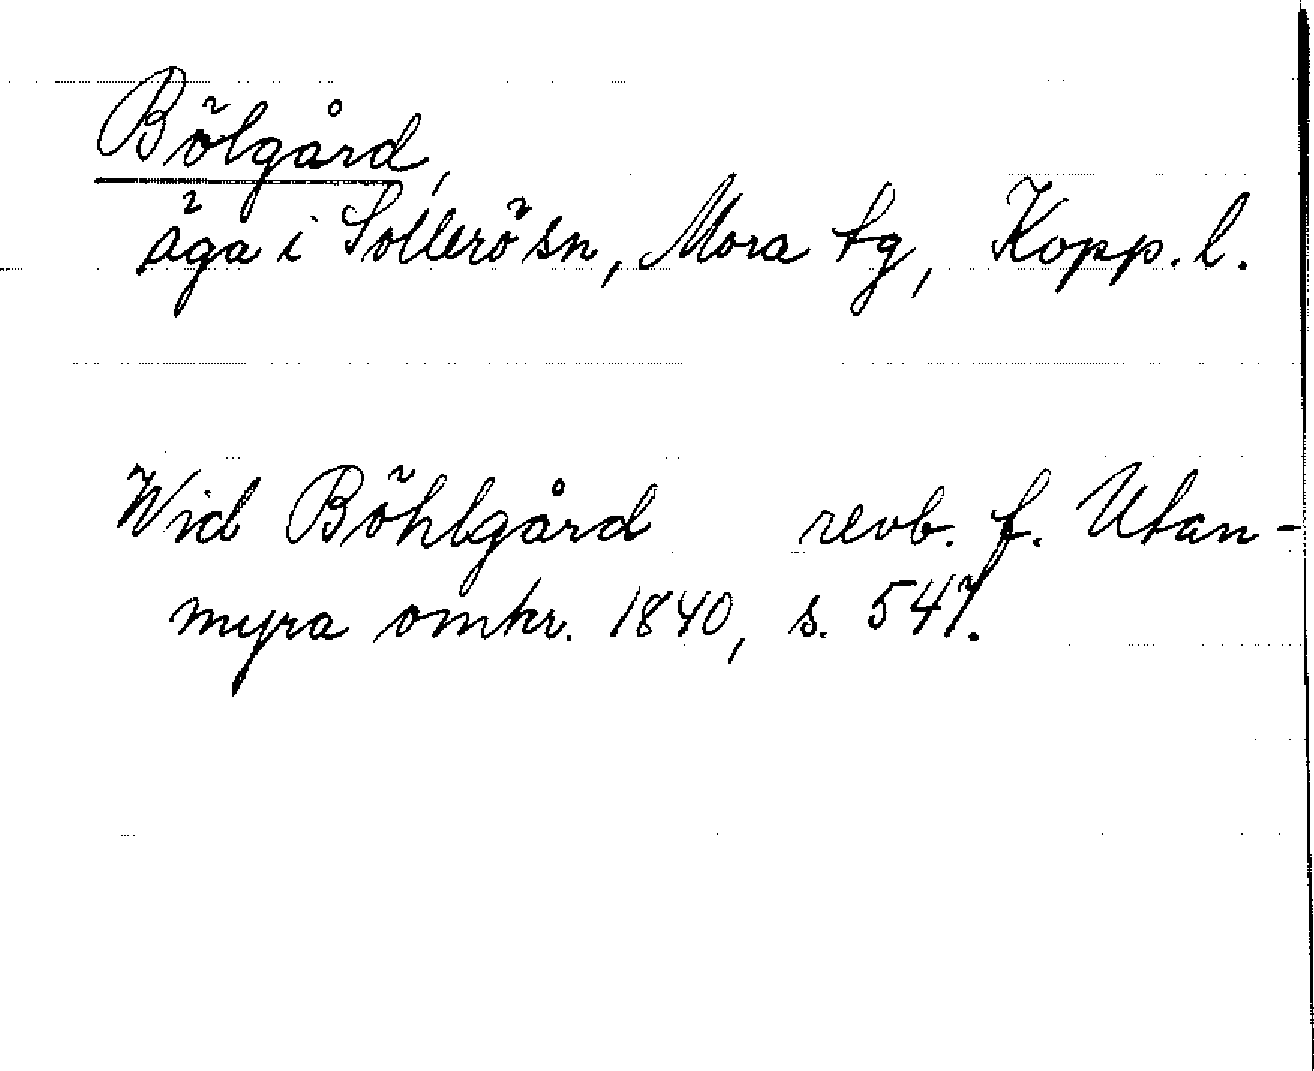 Bölgård,
äga i Sollerö sn, Mora tg, Kopp. l.
Wid Böhlgård revb. f. Utan-
myra omkr. 1840, s. 547.